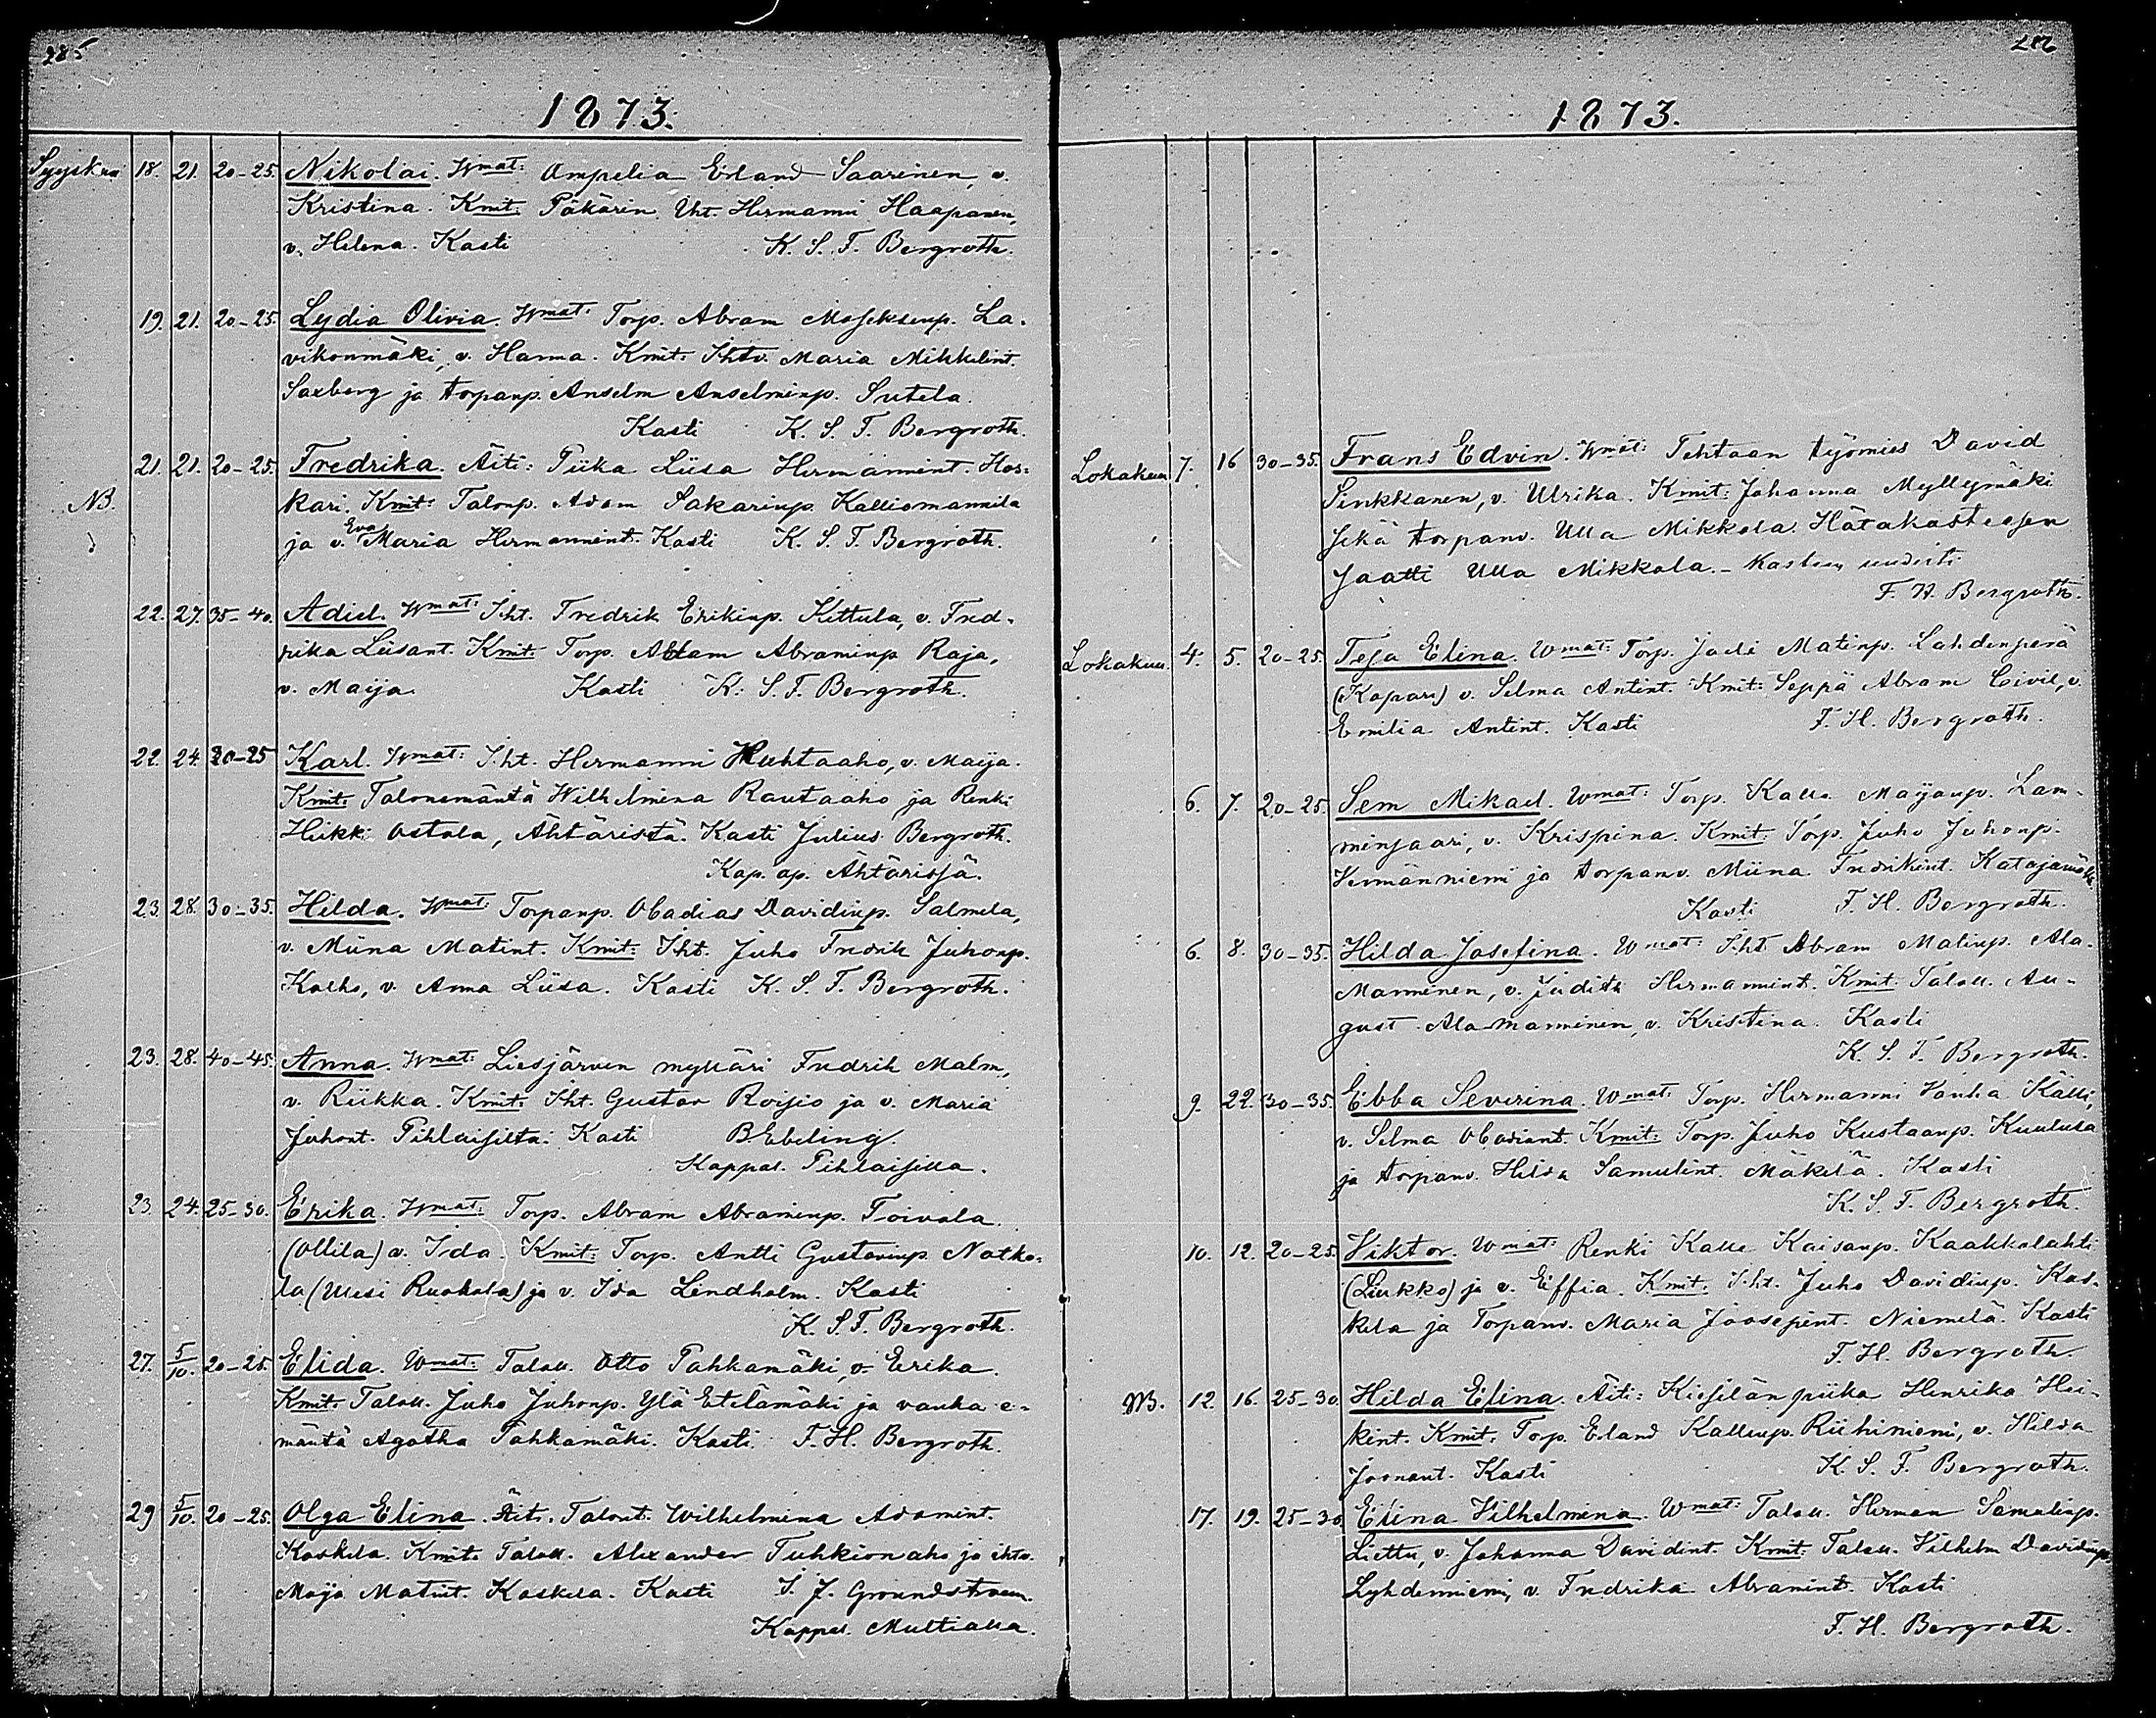 285
1873.
Syyskuu 18. 21. 20-25. Nikolai. Wmat: Ampelia Erland Saarinen, v.
Kristina. Kmit: Päkärin Uht. Hermanni Haapanen,
v. Helena. Kasti K. S. F. Bergroth.
19. 21. 20-25. Lydia Olivia. Wmat: Torp. Abram Moseksenp. La-
vikonmäki, v. Hanna. Kmit: Ihtv. Maria Mikkelint.
Saxberg ja torpanp. Anselm Anselminp. Sutela.
Kasti K. S. F. Bergroth.
21. 21. 20-25. Fredrika. Äiti: Piika Liisa Hermannint. Hos-
NB. kari. Kmit: Talonp. Adam Sakarinp. Kalliomannila
ja v. Eva Maria Hermannint. Kasti K. S. F. Bergroth.
22. 27. 35-40. Adiel. Wmat: Iht. Fredrik Erikinp. Kittula, v. Fred-
rika Leisant. Kmit: Torp. Abram Abraminp Raja,
v. Maija. Kasti K. S. F. Bergroth.
22. 24. 20-25 Karl. Wmat: Iht. Hermanni Huhtaaho, v. Maija.
Kmit: Talonemäntä Wilhelmina Rautaaho ja Renki
Heikki Ostola, Ähtäristä. Kasti Julius Bergroth.
Kap. ap. Ähtärissä.
23. 28. 30-35. Hilda. Wmat: Torpanp. Obadias Davidinp. Salmela,
v. Miina Matint. Kmit: Iht. Juho Fredrik Juhonp.
Kalho, v. Anna Liisa. Kasti K. S. F. Bergroth.
23. 28. 40-45. Anna. Wmat: Liesjärven mylläri Fredrik Malm,
v. Riikka. Kmit: Iht. Gustav Roisio ja v. Maria
Juhont. Pihlaisilta. Kasti B Ebeling.
Kappal. Pihlaisilla.
23. 24. 25-30. Erika. Wmat: Torp. Abram Abraminp. Toivola
(Ollila) v. Ida. Kmit: Torp. Antti Gustavinp. Notko-
la (Uusi Ruokola) ja v. Ida Lindholm. Kasti
K. S. F. Bergroth.
27. 5/10. 20-25. Elida. Wmat: Talall. Otto Pahkamäki, v. Eerika.
Kmit: Talall. Juho Juhonp. Ylä Etelämäki ja vanha e-
mäntä Agatha Pahkamäki. Kasti F. H. Bergroth.
29 5/10. 20-25. Olga Elina. Äiti. Talont. Wilhelmina Adamint.
Koskela. Kmit: Talall. Alexander Tuhkionaho ja ihtv.
Maija Matint. Koskela. Kasti I. J. Groundstroem.
Kappal. Multialla.
286
1873.
Lokakuu 7. 16 30-35. Frans Edvin. Wmat: Tehtaan työmies David
Sinkkanen, v. Ulrika. Kmit: Johanna Myllymäki
sekä torpanv. Ulla Mikkola. Hätäkasteesen
saatti Ulla Mikkola. - Kasteen uudisti
F. H. Bergroth.
Lokakuu. 4. 5. 20-25. Tesa Elina. Wmat: Torp. Jaeli Matinp. Lahdenperä
(Kopari) v. Selma Antint. Kmit: Seppä Abram Civil, v.
Emilia Antint. Kasti F. H. Bergroth.
6. 7. 20-25. Sem Mikael. Wmat: Torp. Kalle Maijanp. Lam-
minsaari, v. Krispina. Kmit: Torp. Juho Juhonp.
Hermänniemi ja torpanv. Miina Fredrikint. Katajamäki.
Kasti F. H. Bergroth.
6. 8. 30-35. Hilda Josefina. Wmat: Iht Abram Matinp. Ala-
Manninen, v. Judith Hermannint. Kmit: Talall. Au-
gust Ala-Manninen, v. Kristina. Kasti
K. S. F. Bergroth.
9. 22. 30-35. Ebba Severina. Wmat: Torp. Hermanni Vanha Källi,
v. Selma Obadiant. Kmit: Torp. Juho Kustaanp. Kuulusa
ja torpanv. Hilda Samulint. Mäkelä. Kasti
K. S. F. Bergroth.
10. 12. 20-25. Viktor. Wmat: Renki Kalle Kaisanp. Kaakkolahti
(Liukko) ja v. Eiffia. Kmit: Iht. Juho Davidinp. Kos-
kela ja Torpanv. Maria Joosepint. Niemelä. Kasti
F. H. Bergroth.
NB. 12. 16. 25-30. Hilda Elina. Äiti: Kiesilän piika Henrika Hei-
kint. Kmit: Torp. Erland Kallenp. Riihiniemi, v. Hilda
Joonant. Kasti K. S. F. Bergroth.
17. 19. 25-30 Elina Vilhelmina. Wmat: Talall. Herman Samulinp.
Liettu, v. Johanna Davidint. Kmit: Talall. Vilhelm Davidinp.
Lyhdenniemi, v. Fredrika Abramint. Kasti
F. H. Bergroth.